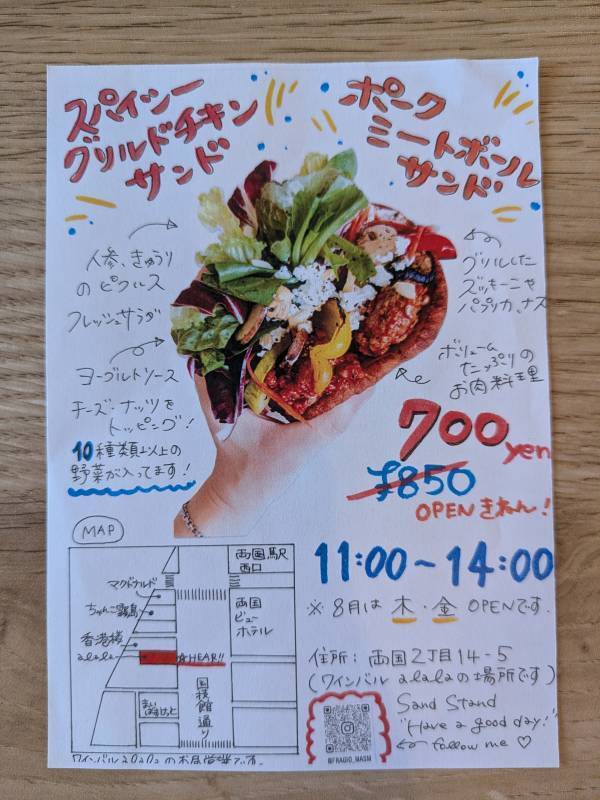 スパイシー
グリルドチキン
サンド
ポーク
ミートボール
サンド
人参、きゅうり
のピクルス
フレッシュサラダ
ヨーグルトソース
チーズ・ナッツを
トッピング!
10種類以上の
野菜が入ってます!
グリルした
ズッキーニや
パプリカ、ナス
ボリューム
たっぷりの
お肉料理
700yen
¥850
OPENきねん!
11:00~14:00
※ 8月は 木・金 OPENです。
住所: 両国2丁目14-5
(ワインバル alalaの場所です)
Sand Stand
"Have a good day!"
follow me ♡
@FRAGIO_MASM
MAP
両国駅
西口
マクドナルド
ちゃんこ霧島
両国
ビュー
ホテル
香港楼
alala
☆HEAR!!
国技館通り
まいばすけっと
ワインバルalalaの